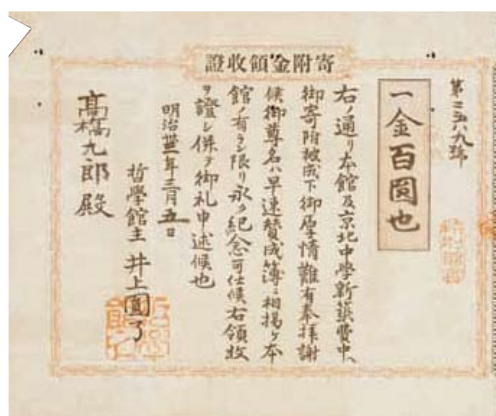 寄附金領收證
第二五八九號
一金百圓也
右ノ通リ本館及京北中學新築費中ヘ
御寄附被成下御厚情難有奉拝謝
候御尊名ハ早速賛成簿ニ相揚ケ本
館ノ有ラン限リ永ク紀念可仕候右領收
ヲ證シ併テ御礼申述候也
明治卅一年三月五日
哲學館主 井上圓了
髙橋九郎殿